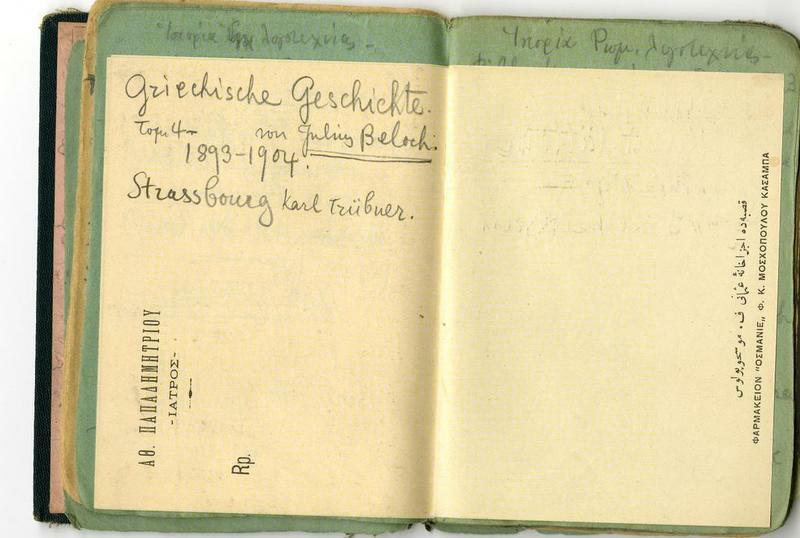 Ἱστορία Ἑλλ. λογοτεχνίας -
Ἱστορία Ρωμ. λογοτεχνίας -
Griechische Geschichte.
Τομ. 4 - von Julius Beloch.
1893-1904.
Strassbourg Karl Trübner.
ΑΘ. ΠΑΠΑΔΗΜΗΤΡΙΟΥ
-ΙΑΤΡΟΣ-
Rp.
قصبه ده اجزاخانهٔ عثمانی ف. ه. موسخوپولوس
ΦΑΡΜΑΚΕΙΟΝ "ΟΣΜΑΝΙΕ„ Φ. Κ. ΜΟΣΧΟΠΟΥΛΟΥ ΚΑΣΑΜΠΑ